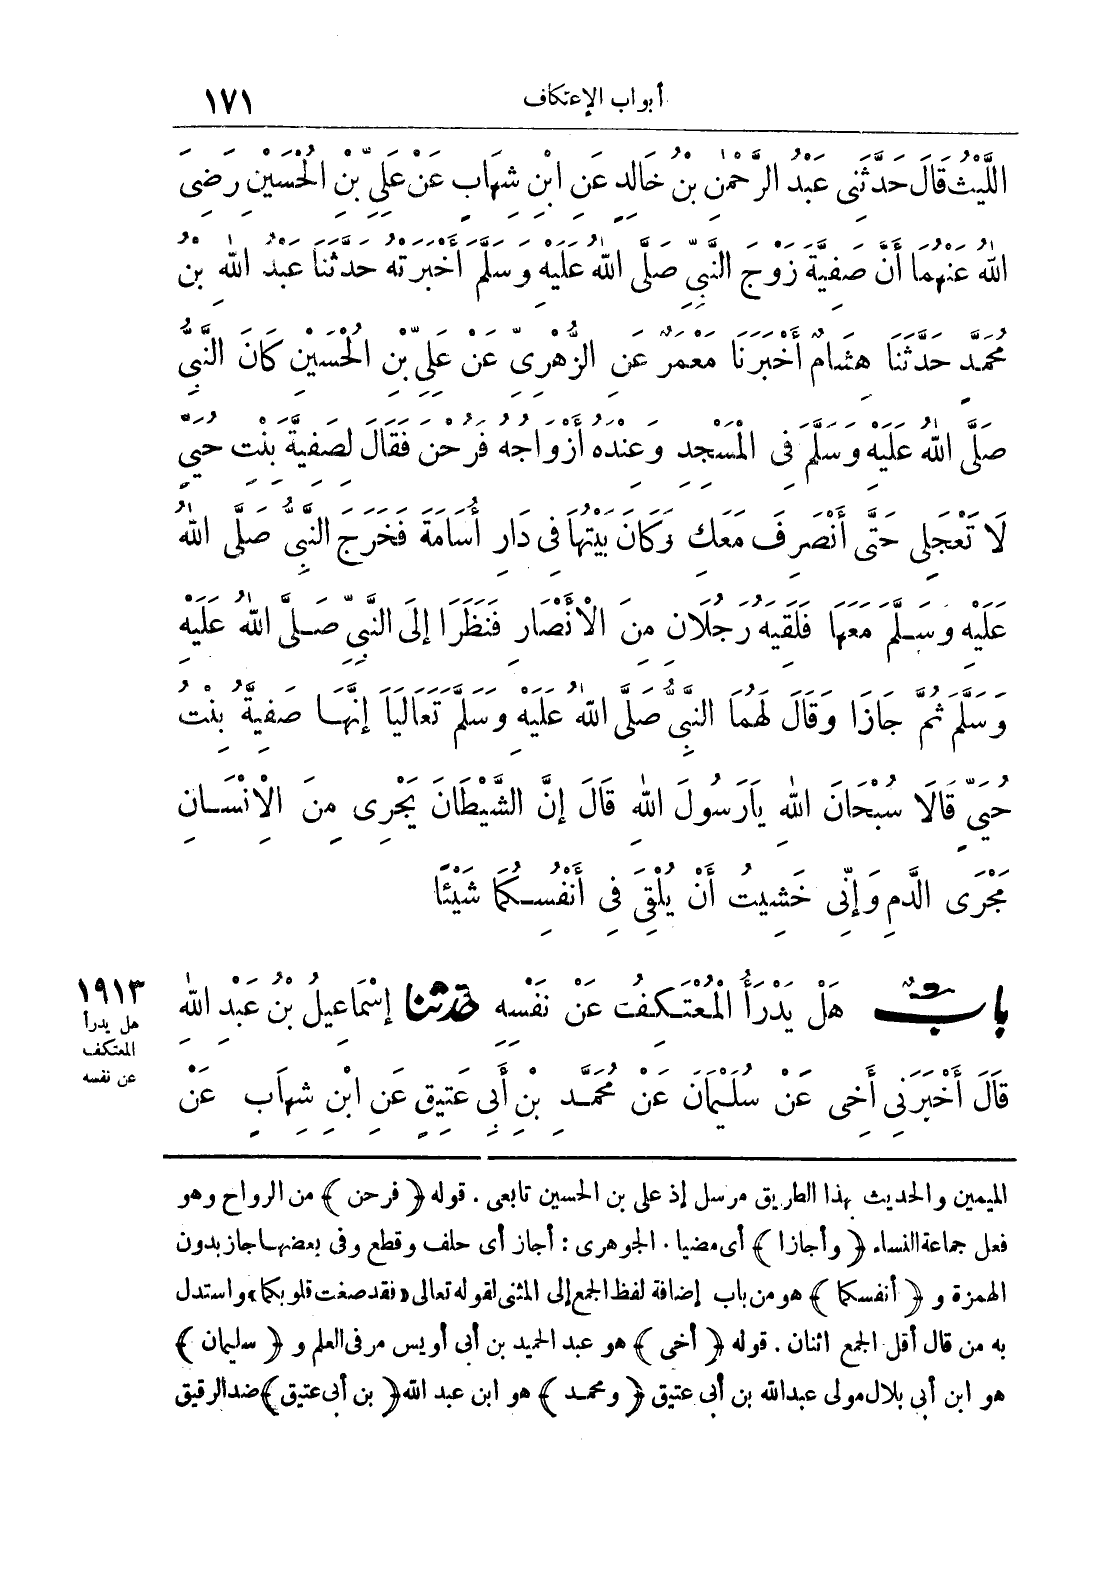 أبواب الإعتكاف ١٧١
اللَّيْثُ قَالَ حَدَّثَنِى عَبْدُ الرَّحْمٰنِ بْنُ خَالِدٍ عَنِ ابْنِ شِهَابٍ عَنْ عَلِىِّ بْنِ الْحُسَيْنِ رَضِىَ
اللهُ عَنْهُمَا أَنَّ صَفِيَّةَ زَوْجَ النَّبِىِّ صَلَّى اللهُ عَلَيْهِ وَسَلَّمَ أَخْبَرَتْهُ حَدَّثَنَا عَبْدُ اللهِ بْنُ
مُحَمَّدٍ حَدَّثَنَا هِشَامٌ أَخْبَرَنَا مَعْمَرٌ عَنِ الزُّهْرِىِّ عَنْ عَلِىِّ بْنِ الْحُسَيْنِ كَانَ النَّبِىُّ
صَلَّى اللهُ عَلَيْهِ وَسَلَّمَ فِى الْمَسْجِدِ وَعِنْدَهُ أَزْوَاجُهُ فَرُحْنَ فَقَالَ لِصَفِيَّةَ بِنْتِ حُيَىٍّ
لَا تَعْجَلِى حَتَّى أَنْصَرِفَ مَعَكِ وَكَانَ بَيْتُهَا فِى دَارِ أُسَامَةَ فَخَرَجَ النَّبِىُّ صَلَّى اللهُ
عَلَيْهِ وَسَلَّمَ مَعَهَا فَلَقِيَهُ رَجُلَانِ مِنَ الْأَنْصَارِ فَنَظَرَا إِلَى النَّبِىِّ صَلَّى اللهُ عَلَيْهِ
وَسَلَّمَ ثُمَّ جَازَا وَقَالَ لَهُمَا النَّبِىُّ صَلَّى اللهُ عَلَيْهِ وَسَلَّمَ تَعَالَيَا إِنَّهَا صَفِيَّةُ بِنْتُ
حُيَىٍّ قَالَا سُبْحَانَ اللهِ يَارَسُولَ اللهِ قَالَ إِنَّ الشَّيْطَانَ يَجْرِى مِنَ الْإِنْسَانِ
مَجْرَى الدَّمِ وَإِنِّى خَشِيتُ أَنْ يُلْقِىَ فِى أَنْفُسِكُمَا شَيْئًا
بَابٌ هَلْ يَدْرَأُ الْمُعْتَكِفُ عَنْ نَفْسِهِ حَدَّثَنَا إِسْمَاعِيلُ بْنُ عَبْدِ اللهِ
١٩١٣
هل يدرأ
المعتكف
عن نفسه
قَالَ أَخْبَرَنِى أَخِى عَنْ سُلَيْمَانَ عَنْ مُحَمَّدِ بْنِ أَبِى عَتِيقٍ عَنِ ابْنِ شِهَابٍ عَنْ
الميمين والحديث بهذا الطريق مرسل إذ على بن الحسين تابعى. قوله ﴿فرحن﴾ من الرواح وهو
فعل جماعة النساء ﴿وأجازا﴾ أى مضيا. الجوهرى: أجاز أى خلف وقطع وفى بعضها جاز بدون
الهمزة و ﴿أنفسكما﴾ هو من باب إضافة لفظ الجمع إلى المثنى لقوله تعالى «فقد صغت قلوبكما» واستدل
به من قال أقل الجمع اثنان. قوله ﴿أخى﴾ هو عبد الحميد بن أبى أويس مر فى العلم و ﴿سليمان﴾
هو ابن أبي بلال مولى عبدالله بن أبى عتيق ﴿ومحمد﴾ هو ابن عبد الله ﴿بن أبى عتيق﴾ ضد الرقيق